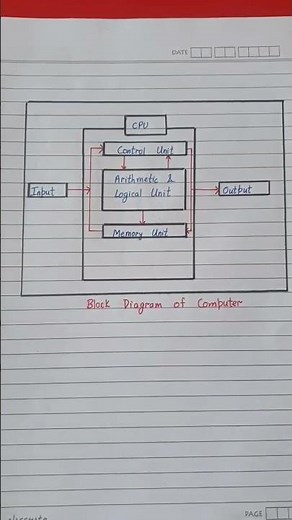 DATE
CPU
Control Unit
Arithmetic &
Logical Unit
Input
Output
Memory Unit
Block Diagram of Computer
PAGE